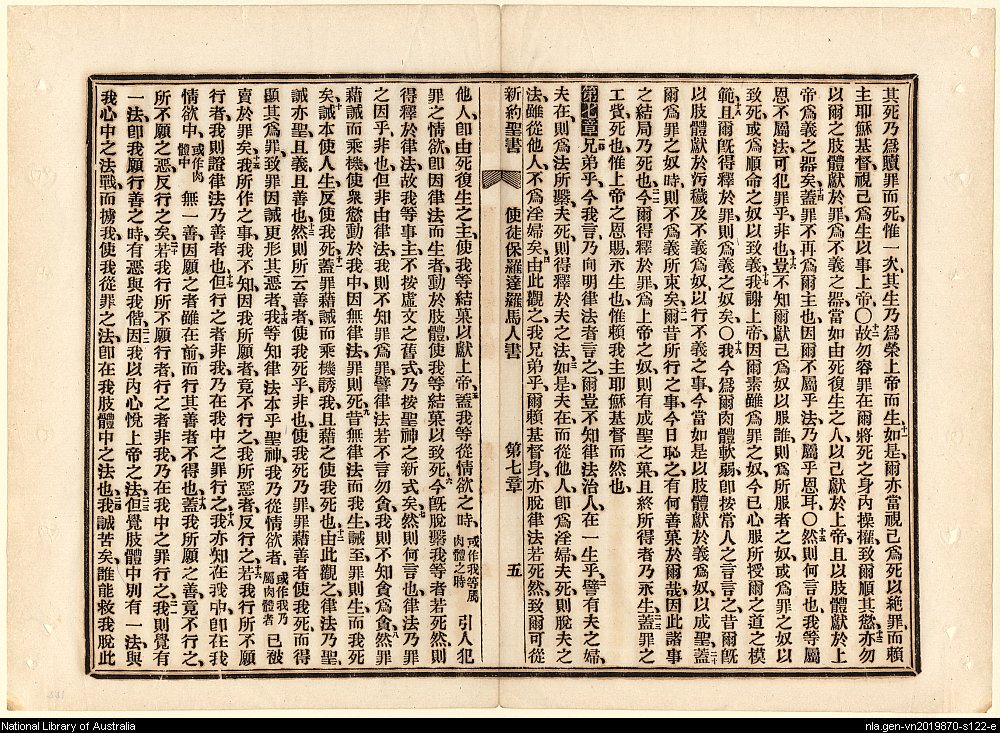 其死乃爲贖罪而死、惟一次、其生乃爲榮上帝而生、十一如是、爾亦當視己爲死以絕罪、而賴
主耶穌基督、視己爲生以事上帝、〇十二故勿容罪在爾將死之身內操權、致爾順其慾、十三亦勿
以爾之肢體獻於罪、爲不義之器、當如由死復生之人、以己獻於上帝、且以肢體獻於上
帝、爲義之器矣、十四蓋罪不再爲爾主也、因爾不屬乎法、乃屬乎恩耳、〇十五然則何言也、我等屬
恩不屬法、可犯罪乎、非也、十六豈不知爾獻己爲奴以服誰、則爲所服者之奴、或爲罪之奴以
致死、或爲順命之奴以致義、十七我謝上帝、因爾素雖爲罪之奴、今已心服所授爾之道之模
範、十八且爾旣得釋於罪、則爲義之奴矣、〇十九我今爲爾肉體軟弱、卽按常人之言言之、昔爾旣
以肢體獻於污穢及不義爲奴、以行不義之事、今當如是以肢體獻於義爲奴、以成聖、二十蓋
爾爲罪之奴時、則不爲義所束矣、二一爾昔所行之事、今日恥之、有何善菓於爾哉、因此諸事
之結局乃死也、二二今爾得釋於罪、爲上帝之奴、則有成聖之菓、且終所得者乃永生、二三蓋罪之
工貲、死也、惟上帝之恩賜、永生也、惟賴我主耶穌基督而然也、
第七章 一兄弟乎、今我言乃向明律法者言之、爾豈不知律法治人、在一生乎、二譬有夫之婦、
夫在則爲法所繫、夫死則得釋於夫之法、三如是夫在而從他人、卽爲淫婦、夫死則脫夫之
法、雖從他人、不爲淫婦矣、四由此觀之、我兄弟乎、爾賴基督身、亦脫律法若死然、致爾可從
新約聖書 使徒保羅達羅馬人書 第七章 五
他人、卽由死復生之主、使我等結菓以獻上帝、五蓋我等從情欲之時、或作我等屬肉體之時 引人犯
罪之情欲、卽因律法而生者、動於肢體、使我等結菓以致死、六今旣脫繫我等者若死然、則
得釋於律法、故我等事主、不按虛文之舊式、乃按聖神之新式矣、七然則何言也、律法乃罪
之因乎、非也、但非由律法、我則不知罪爲罪、譬律法若不言勿貪、我則不知貪爲貪、八然罪
藉誡而乘機、使衆慾動於我中、因無律法、罪則死、九昔無律法而我生、誡至罪則生、而我死
矣、十誡本使人生、反使我死、十一蓋罪藉誡而乘機誘我、且藉之使我死也、十二由此觀之、律法乃聖、
誡亦聖、且義、且善也、十三然則所云善者使我死乎、非也、使我死乃罪、罪藉善者使我死、而得
顯其爲罪、致罪因誡更形其惡者、十四我等知律法本乎聖神、我乃從情欲者、或作我乃屬肉體者 已被
賣於罪矣、十五我所作之事、我不知、因我所願者竟不行之、我所惡者反行之、十六若我行所不願
行者、我則證律法乃善者也、十七但行之者非我、乃在我中之罪行之、十八我亦知在我中、卽在我
情欲中、或作肉體中 無一善、因願之者雖在前、而行其善者不得也、十九蓋我所願之善、竟不行之、
所不願之惡、反行之矣、二十若我行所不願行者、行之者非我、乃在我中之罪行之、二一我則覺有
一法、卽我願行善之時、有惡與我偕、二二因我以內心悅上帝之法、二三但覺肢體中別有一法、與
我心中之法戰、而擄我、使我從罪之法、卽在我肢體中之法也、二四我誠苦矣、誰能救我脫此
National Library of Australia
nla.gen-vn2019870-s122-e